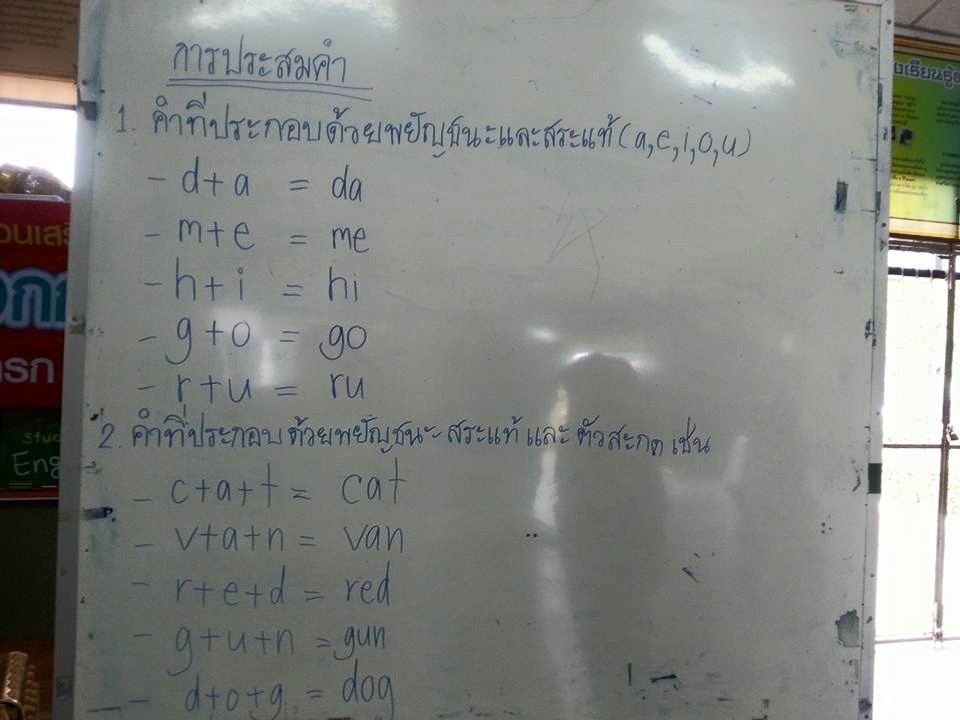 การประสมคำ
1. คำที่ประกอบด้วยพยัญชนะและสระแท้ (a,e,i,o,u)
- d+a = da
- m+e = me
- h+i = hi
- g+o = go
- r+u = ru
2. คำที่ประกอบด้วยพยัญชนะ สระแท้ และ ตัวสะกด เช่น
- c+a+t = cat
- v+a+n = van
- r+e+d = red
- g+u+n = gun
- d+o+g = dog